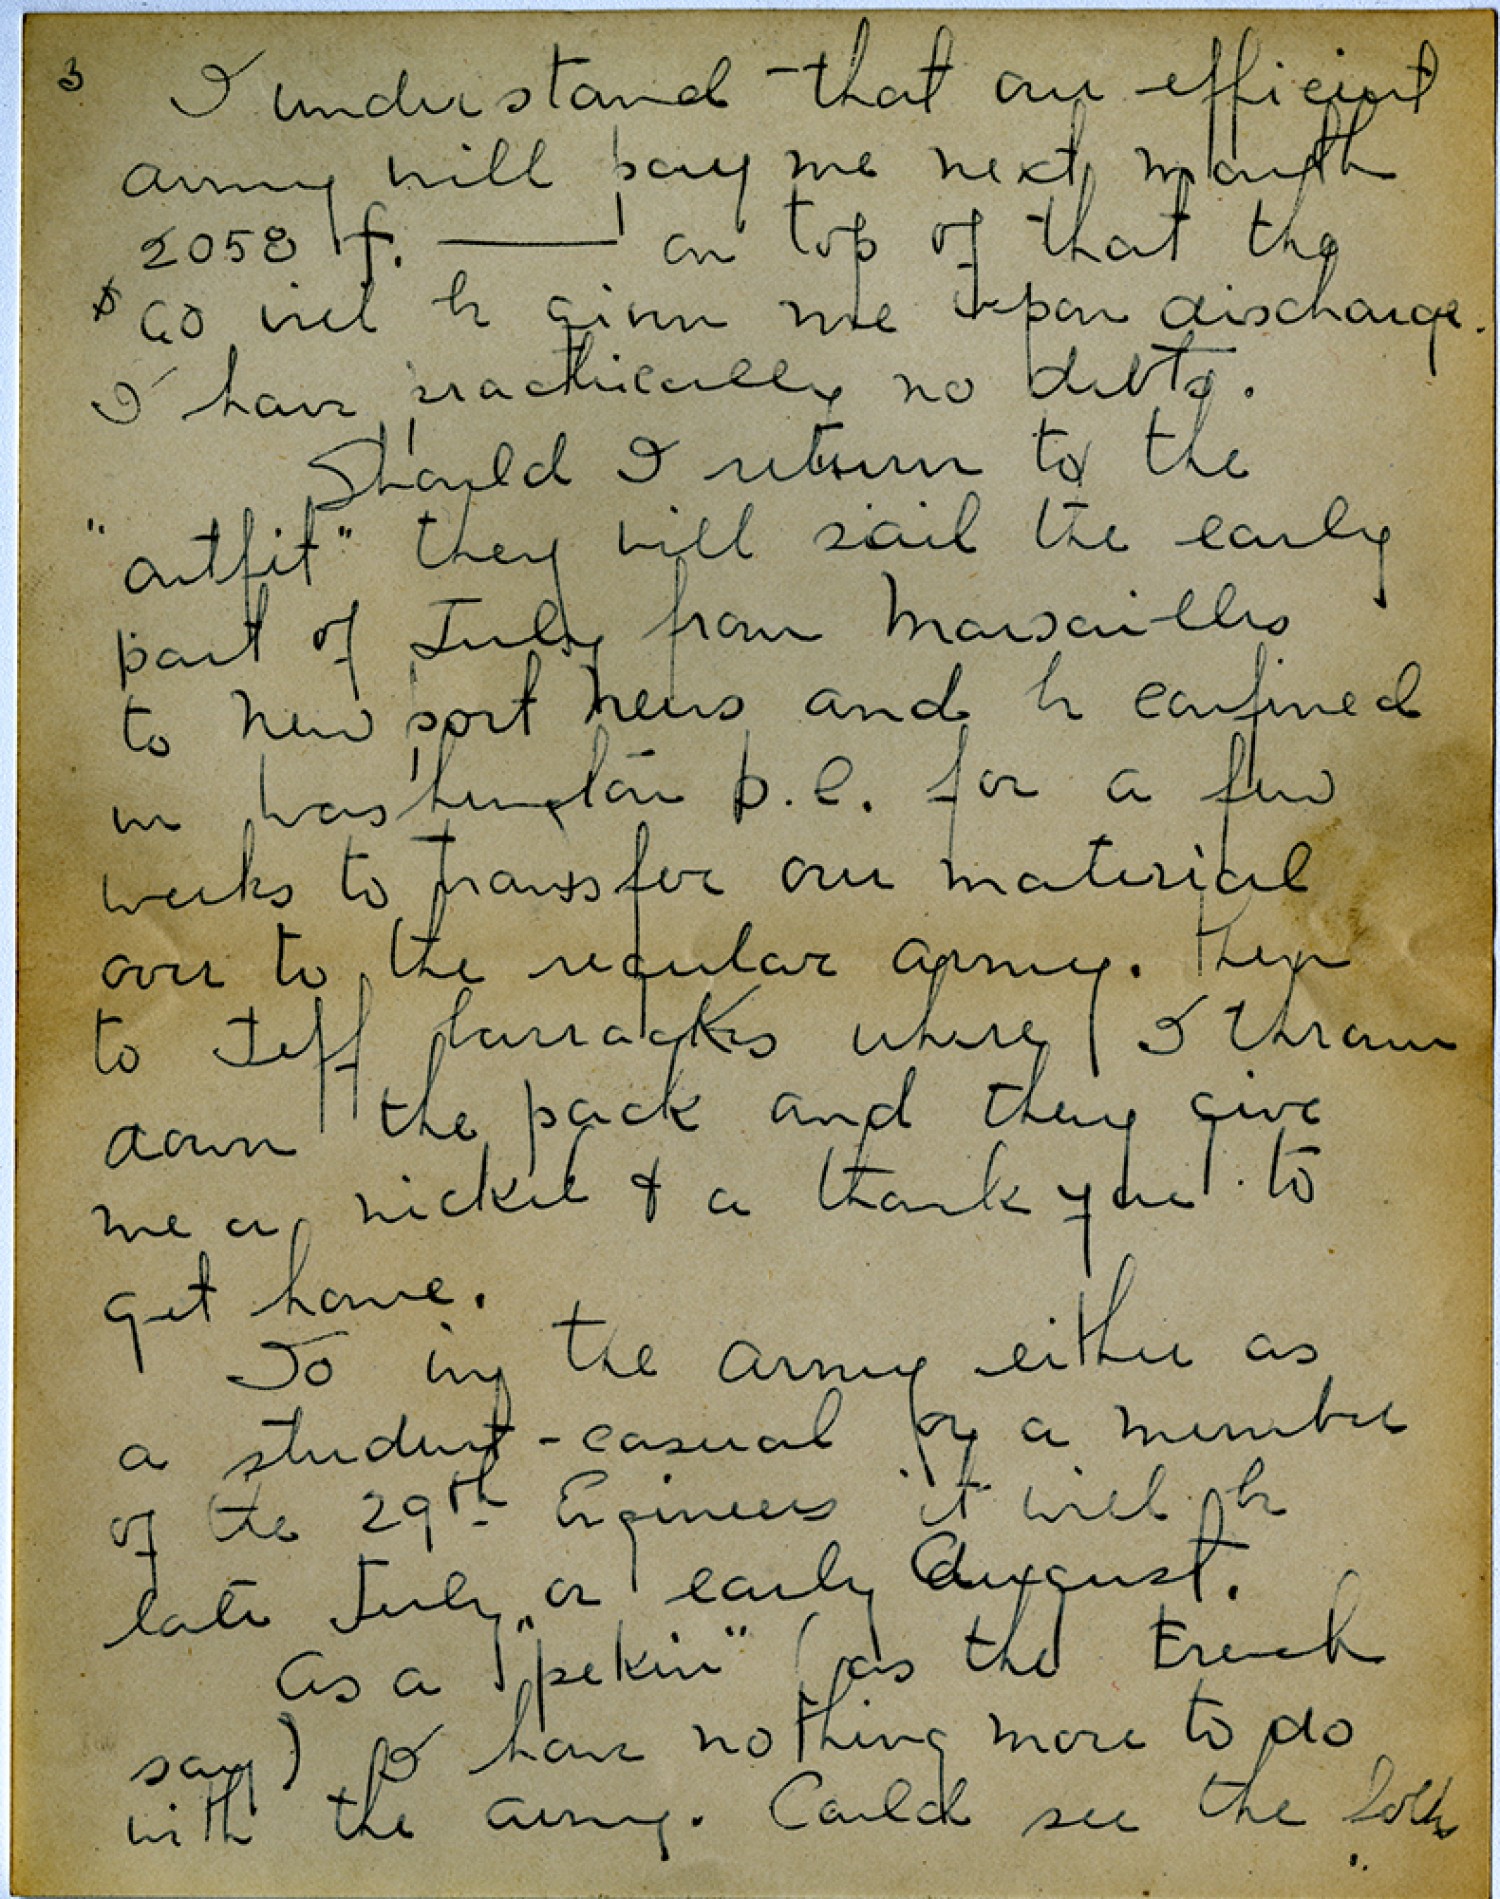 3
I understand that our efficient
army will pay me next month
2058 f. — on top of that the
$60 will be given me upon discharge.
I have practically no debts.
Should I return to the
"outfit" they will sail the early
part of July from Marsailles
to New port News and be confined
in Washington D.C. for a few
weeks to transfer our material
over to the regular army. Then
to Jeff barracks where I throw
down the pack and they give
me a nickel & a thank you to
get home.
So in the army either as
a student-casual or a member
of the 29th Engineers it will be
late July or early August.
As a "pekin" (as the French
say) I have nothing more to do
with the army. Could see the folks